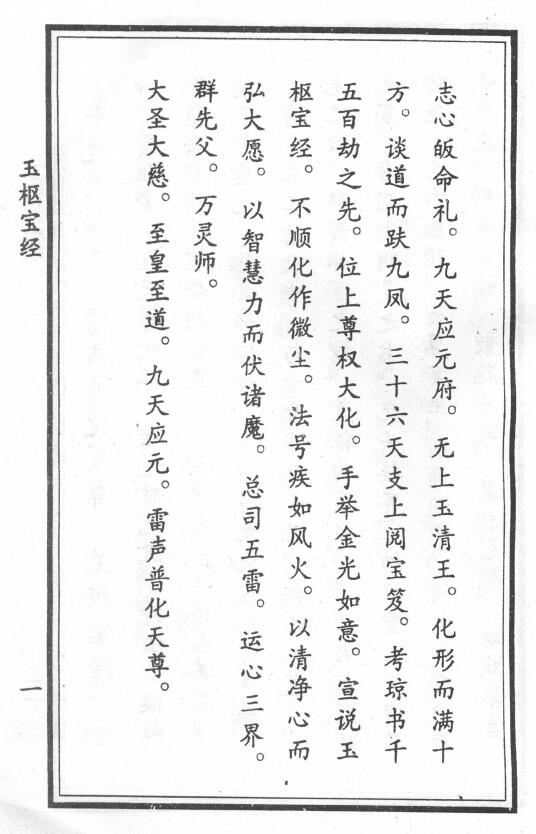 志心皈命礼。九天应元府。无上玉清王。化形而满十
方。谈道而趺九凤。三十六天支上阅宝笈。考琼书千
五百劫之先。位上尊权大化。手举金光如意。宣说玉
枢宝经。不顺化作微尘。法号疾如风火。以清净心而
弘大愿。以智慧力而伏诸魔。总司五雷。运心三界。
群先父。万灵师。
大圣大慈。至皇至道。九天应元。雷声普化天尊。
玉枢宝经
一